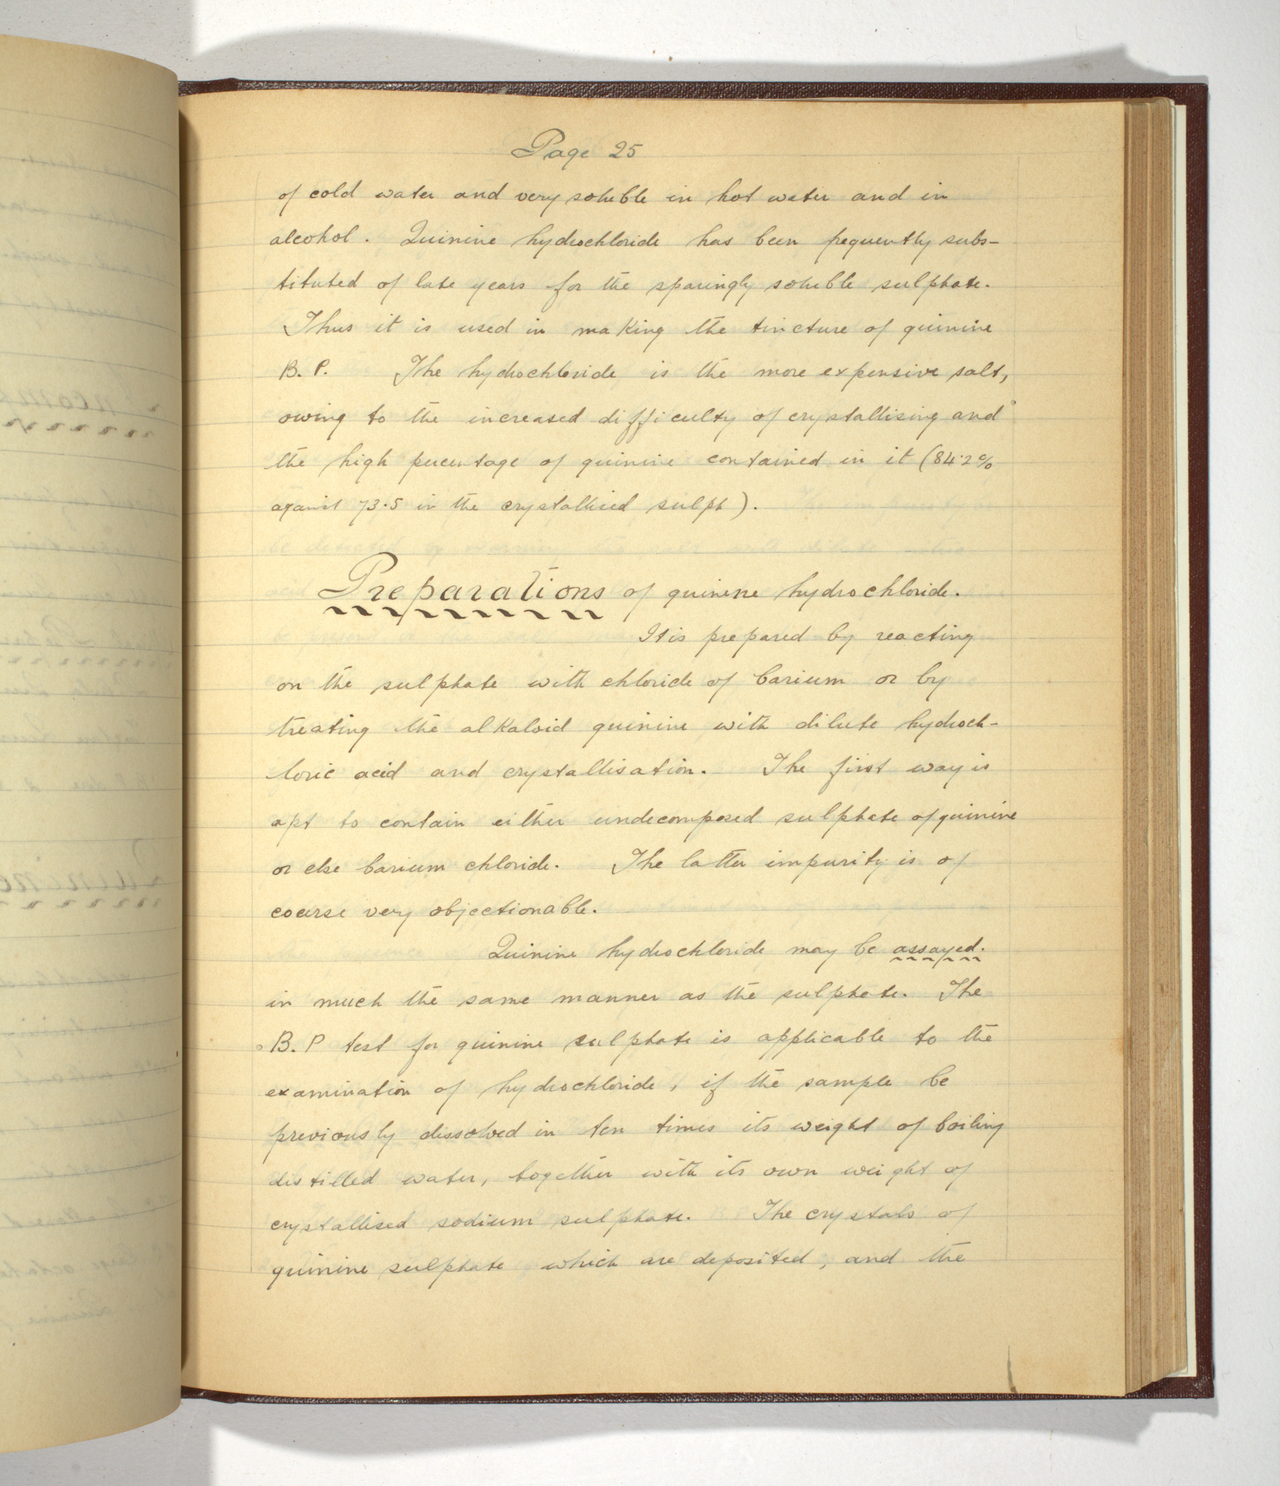 Page 25
of cold water and very soluble in hot water and in
alcohol. Quinine hydrochloride has been frequently subs-
tituted of late years for the sparingly soluble sulphate.
Thus it is used in making the tincture of quinine
B. P. The hydrochloride is the more expensive salt,
owing to the increased difficulty of crystallising and
the high percentage of quinine contained in it (84.2%
against 73.5 in the crystallised sulph).
Preparations of quinine hydrochloride.
It is prepared by reacting
on the sulphate with chloride of barium or by
treating the alkaloid quinine with dilute hydroch-
loric acid and crystallisation. The first way is
apt to contain either undecomposed sulphate of quinine
or else barium chloride. The latter impurity is of
coarse very objectionable.
Quinine hydrochloride may be assayed.
in much the same manner as the sulphate. The
B. P test for quinine sulphate is applicable to the
examination of hydrochloride, if the sample be
previously dissolved in ten times its weight of boiling
distilled water, together with its own weight of
crystallised sodium sulphate. The crystals of
quinine sulphate which are deposited, and the